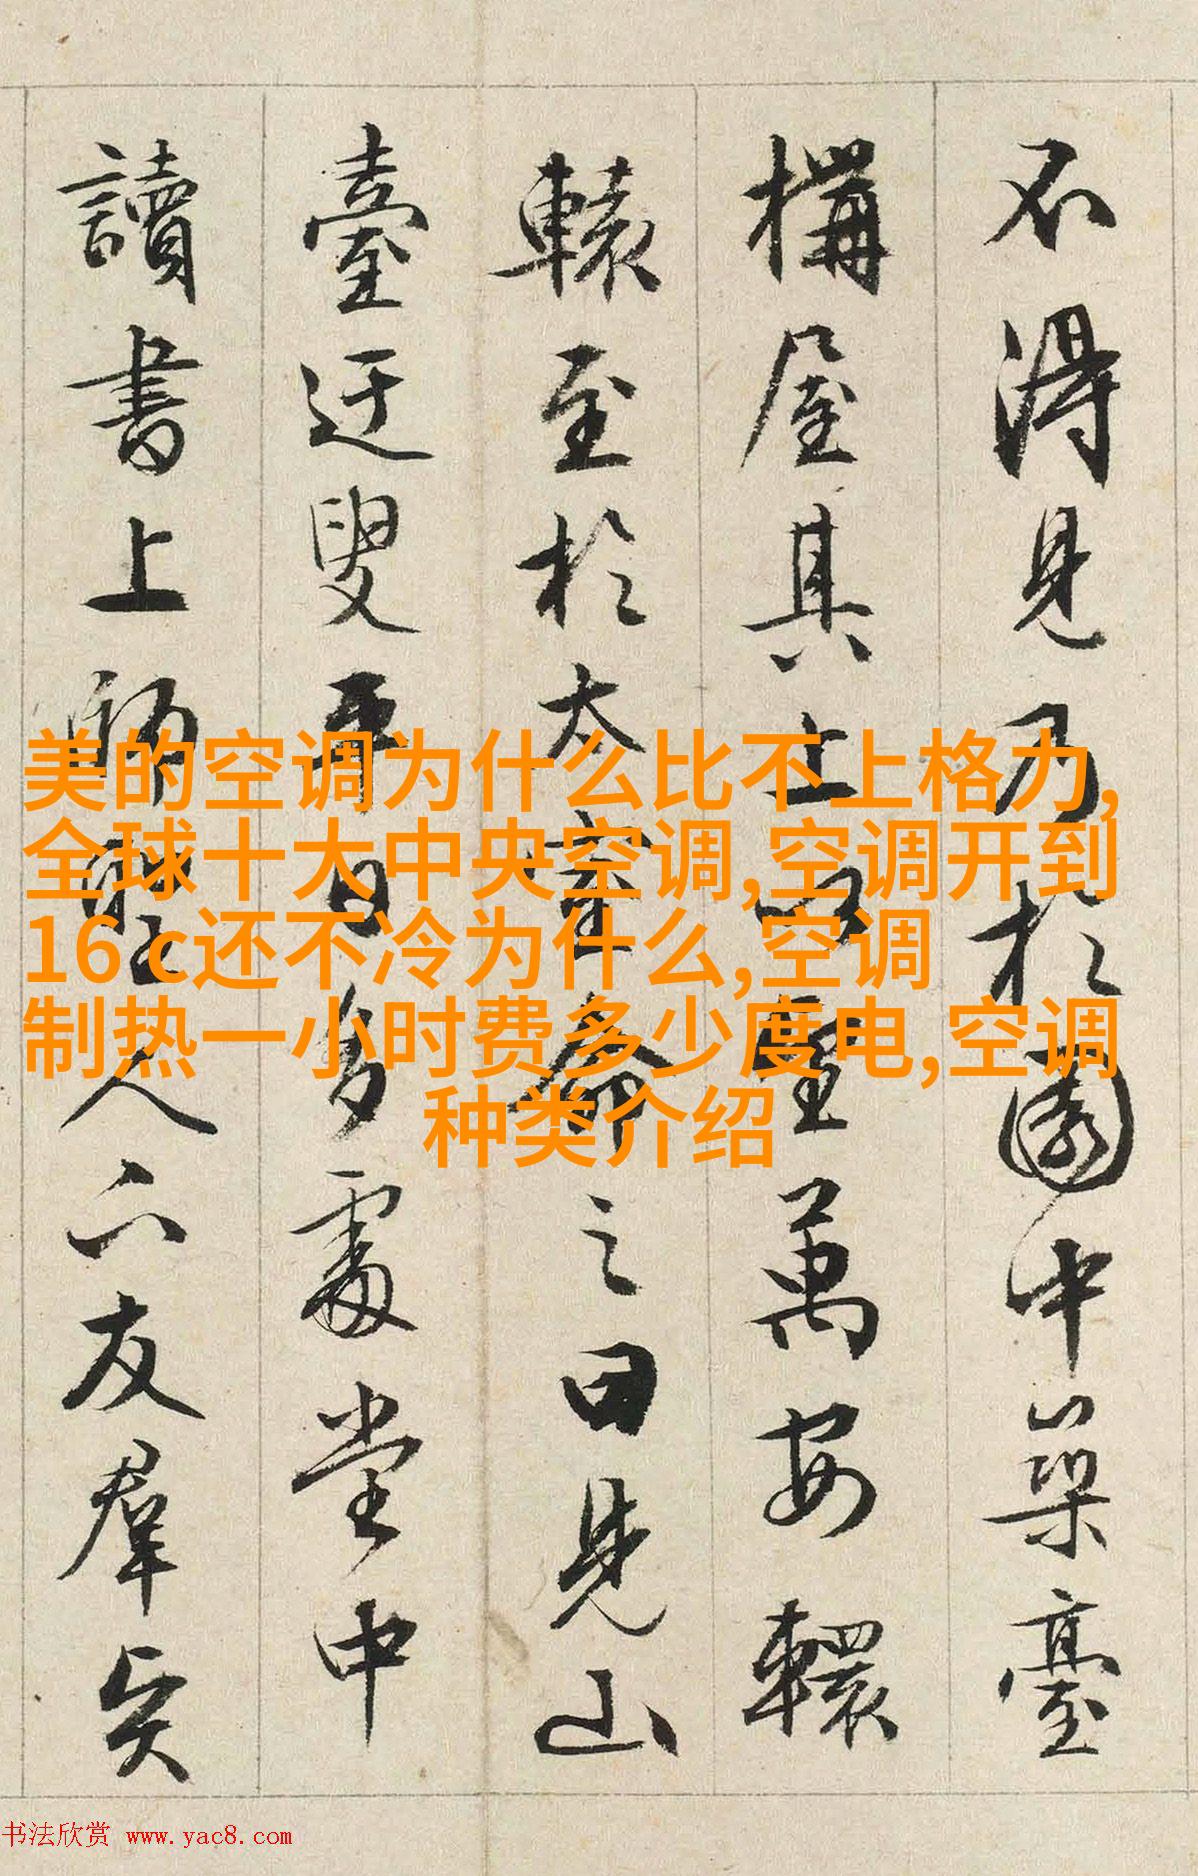 不得見乃於園中築臺
構屋其上以望萬安轘
轅至於太室命之曰見山
臺迂叟平日多處堂中
讀書上師聖人下友羣賢
美的空调为什么比不上格力,
全球十大中央空调,空调开到
16 c还不冷为什么,空调
制热一小时费多少度电,空调
种类介绍
书法欣赏 www.yac8.com